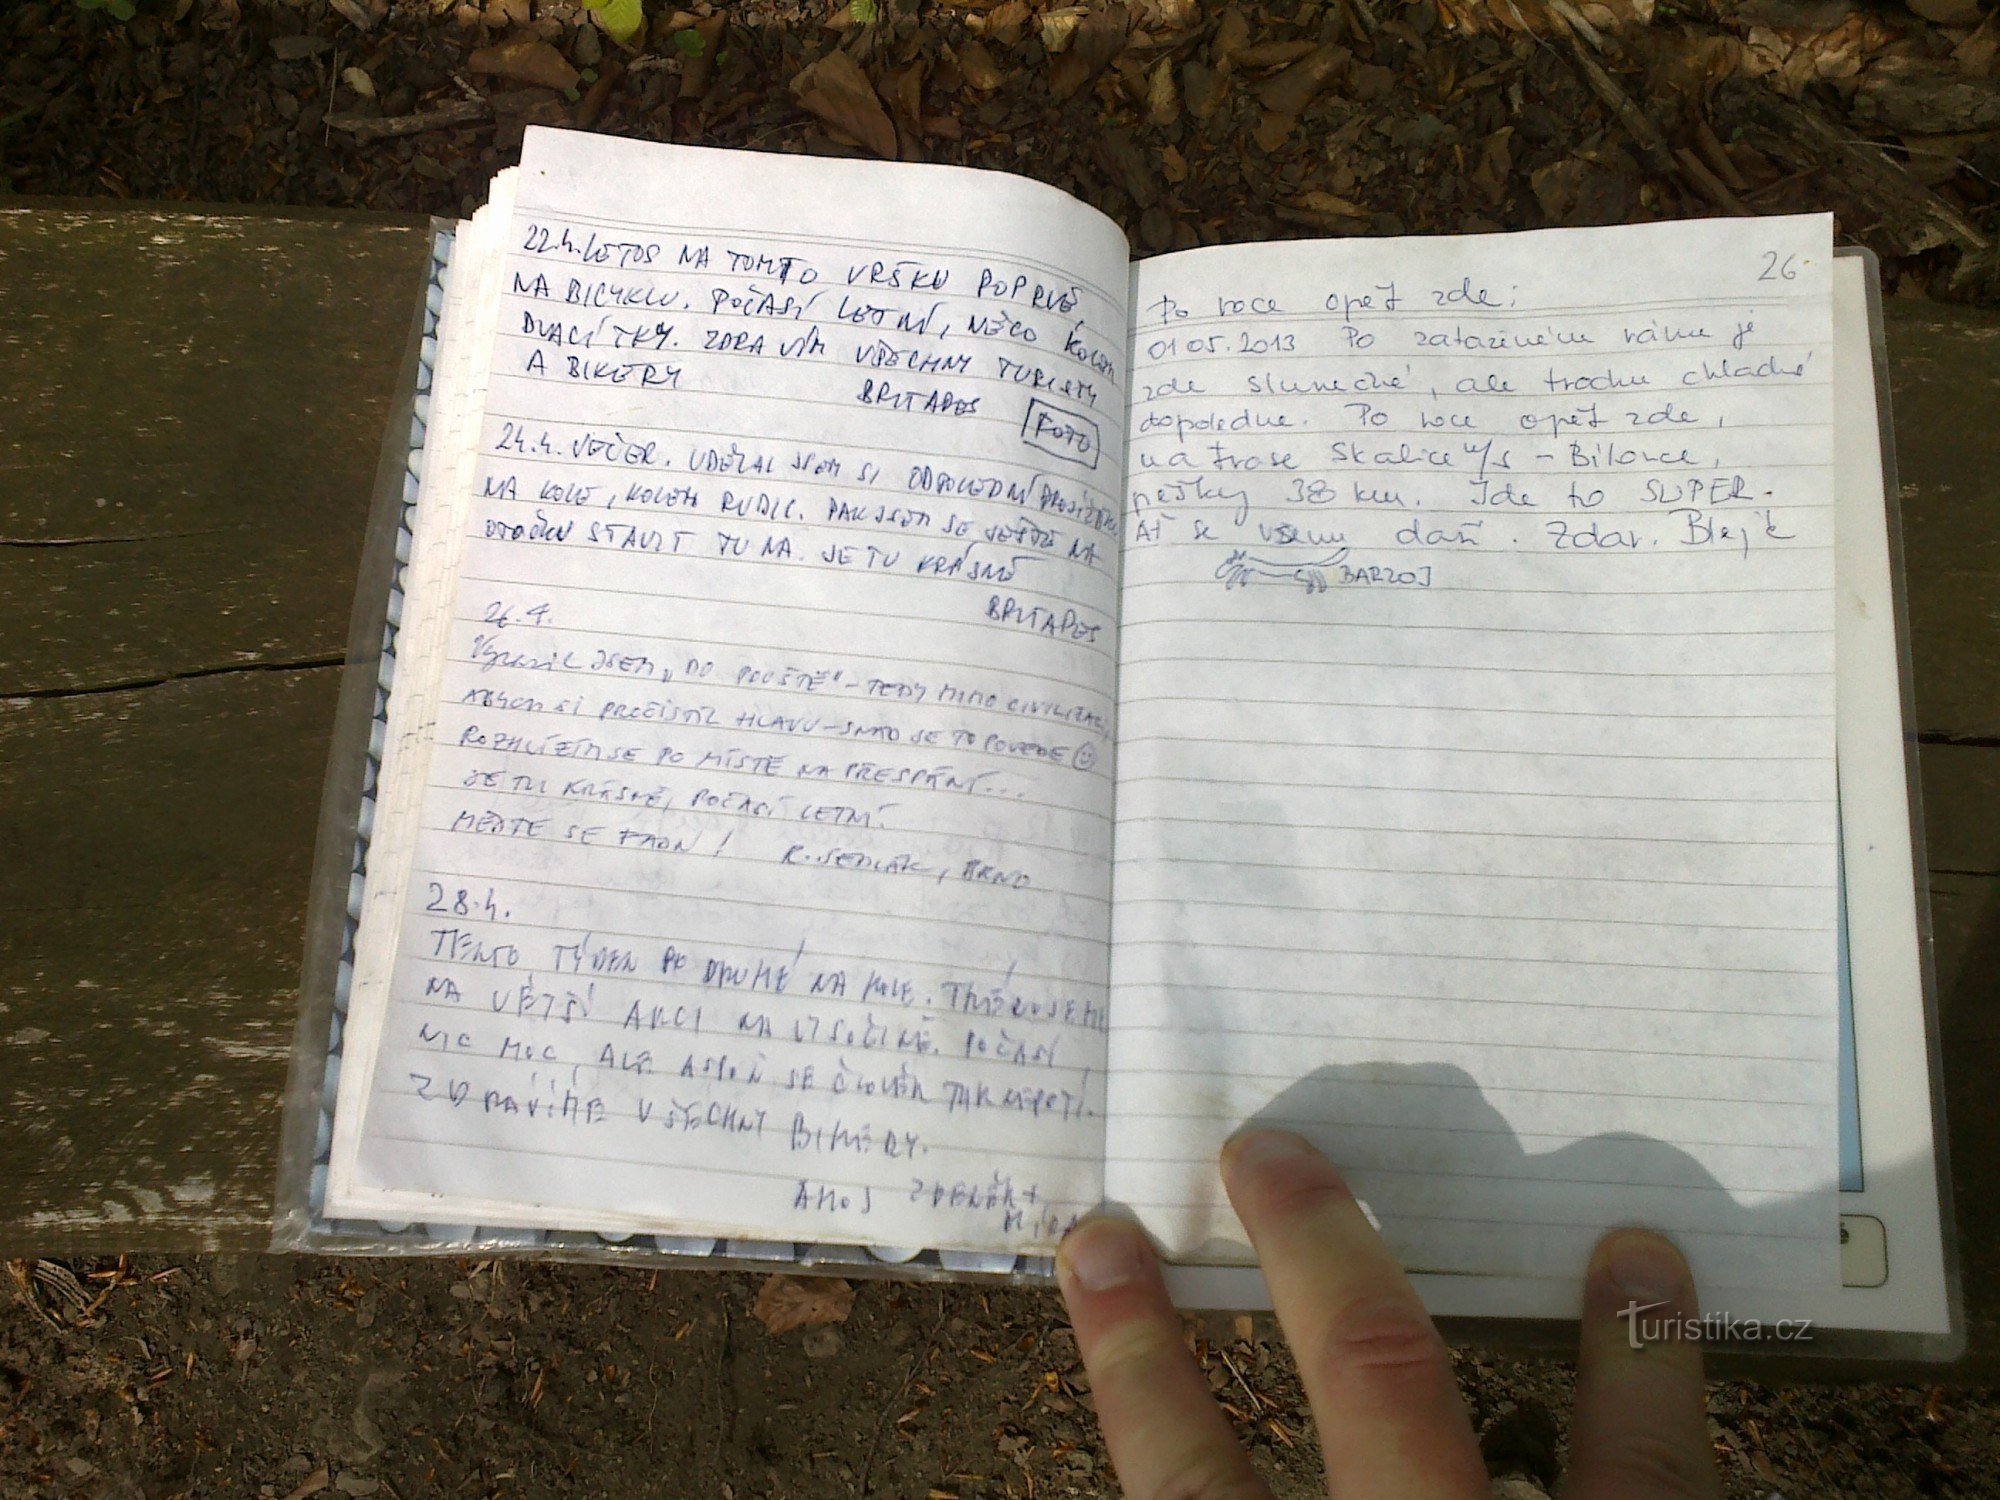 22.4. LETOS NA TOMTO VRŠKU POPRVÉ,
NA BICYKLU. POČASÍ LETNÍ, NĚCO KOLEM
DVACÍTKY. ZDRAVÍM VŠECHNY TURISTY
A BIKERY BRITAPES
FOTO
24.4. VEČER. UDĚLAL JSEM SI ODPOLEDNÍ PROJÍŽĎKU
NA KOLE, KOLEM RUDIC. PAK JSEM SE JEŠTĚ NA
OTOČKU STAVIT TU NA. JE TU KRÁSNĚ
BRITAPES
26.4.
Vyrazil JSEM „DO POUŠTĚ" - TEDY MIMO CIVILIZACI,
ABYCH SI PROČISTIL HLAVU - SNAD SE TO POVEDE
ROZHLÍŽÍM SE PO MÍSTĚ NA PŘESPÁNÍ...
JE TU KRÁSNĚ, POČASÍ LETNÍ.
MĚJTE SE FAJN! R. SEDLÁK, BRNO
28.4.
TENTO TÝDEN PO DRUHÉ NA KOLE.
NA VĚTŠÍ AKCI NA VYSOČINĚ. POČASÍ
NIC MOC, ALE ASPOŇ SE ČLOVĚK TAK NEPOTÍ.
ZDRAVÍME VŠECHNY BIKERY.
AHOJ ZDENĚK +
MÍRA
26
Po roce opět zde:
01 05.2013 Po zataženém ránu je
zde slunečné, ale trochu chladné
dopoledne. Po roce opět zde,
na trase Skalice n/s - Bílovice,
pěšky 38 km. Jde to SUPER.
Ať se všemu daří. Zdar. Blejč
BARZOJ
Turistika.cz